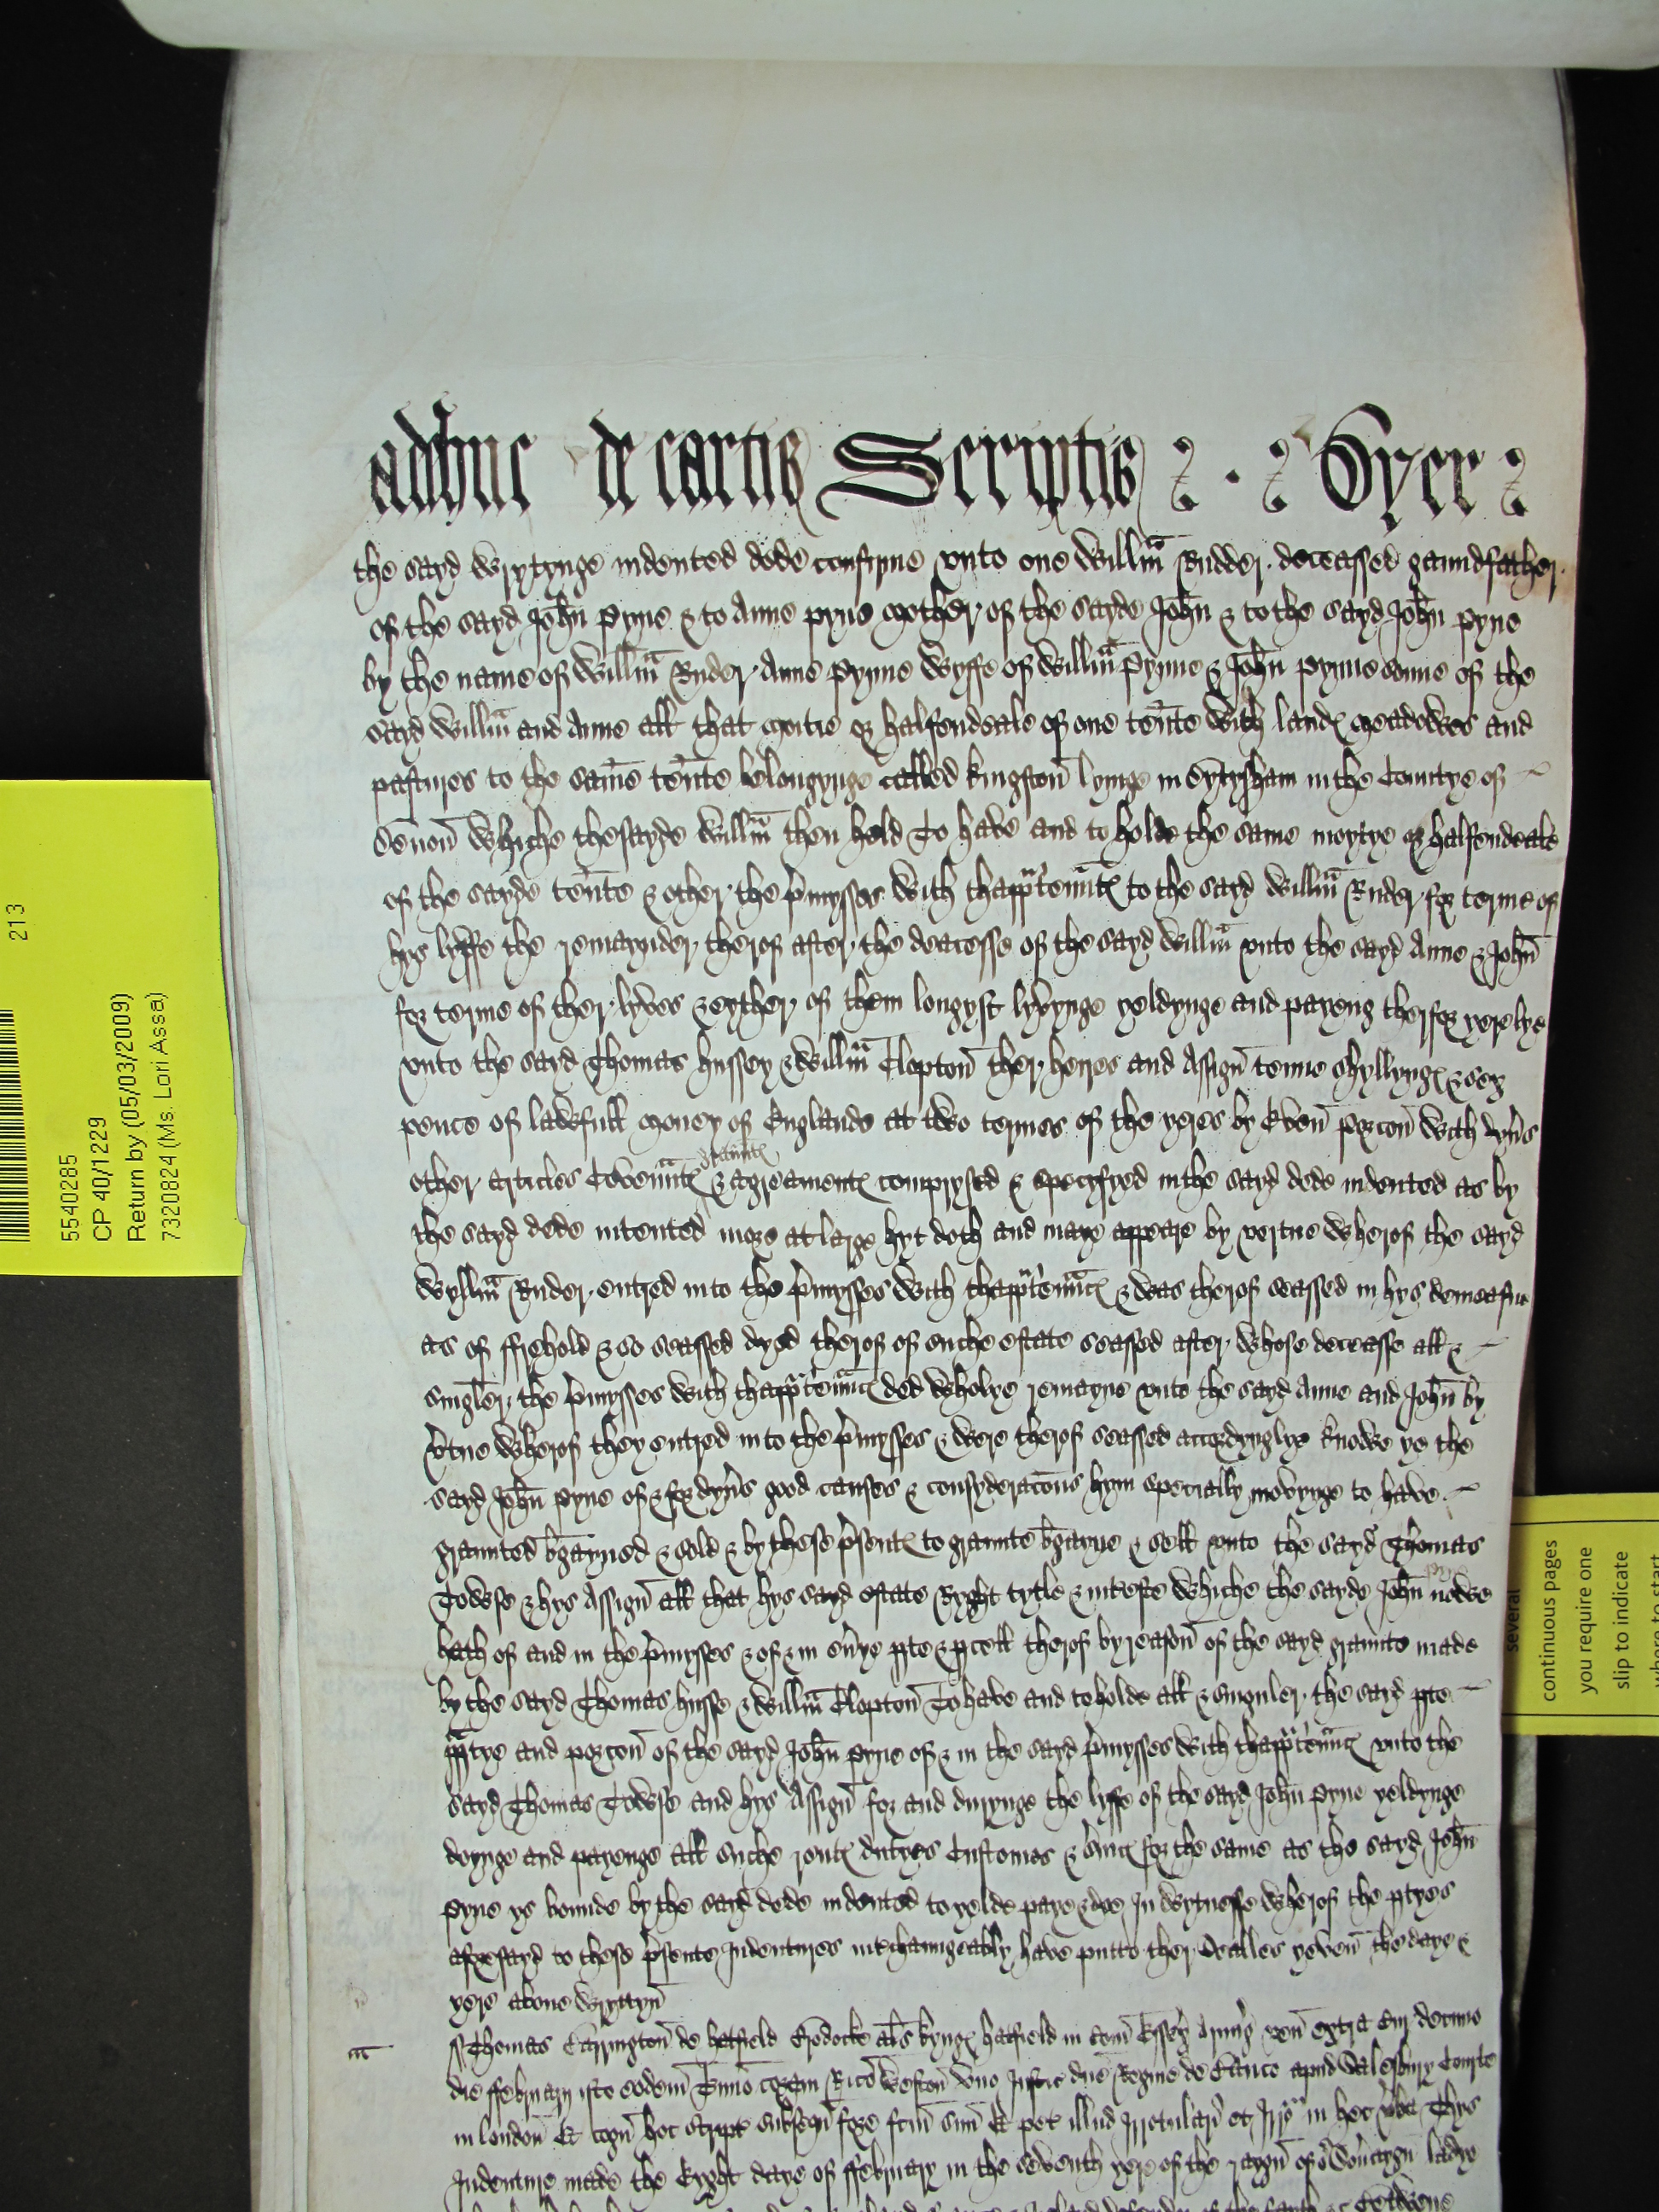 adhuc de cartis Scriptis & . & Oyer &
the sayd wrytynge indented dede confirme vnto one Willm Rudder deceassed graundfather
of the sayd John Pyne & to Anne pyne mother of the sayde John & to the sayd John pyne
by the name of Willm Ruder Anne Pynne wyffe of Willm Pynne & John pynne sonne of the
sayd Willm and Anne all that moitie or halfendeale of one tente with land meadowes and
pastures to the same tente belongynge called kingston lyinge in in the Countye of
Devon whiche thesayde Willm then held To have and to holde the same moytye or halfendeale
of the sayde tente & other the pmysses with thapptennc to the sayd Willm Ruder for terme of
hys lyffe the remaynder therof after the deacesse of the sayd Willm vnto the sayd Anne & John
for terme of ther lyves & eyther of them longyst lyvynge yeldynge and payeng therfor yerelye
vnto the sayd Thomas hussey & Willm Clopton ther heires and Assign tenne shyllyng & sex
pence of lawfull money of Englande at two termes of the yeres by Even porcon with dyvs
other articles Covennt graunt & agreament comprysed & specyfyed in the sayd dede indented as by
the sayd dede intented more at large hyt doth and maye appeare by vertue wherof the sayd
Wyllm Ruder entred into the pmysses with thapptennc & was therof seassed in hys demeasne
as of ffrehold & so seassed dyed therof of suche estate seassed after whose decease all &
singler the pmysses with thapptennc ded wholye remayne vnto the sayd Anne and John by
vtue wherof they entred in to the pmysses & were therof seassed accordynglye knowe ye the
sayd John Pyne of & for dyvs good causes & consyderacons hym specially movynge to have
graunted bgayned & sold & by these psent to graunte bgayne & sell vnto the sayd Thomas
Towse & hys Assign all that hys sayd estate Ryght tytle & interste whiche the sayde John nowe
hath of and in the pmysses & of & in evye pte & pcell therof by reason of the sayd graunte made
by the sayd Thomas husse & Willm Clopton To have and to holde all & singuler the sayd pte
pptye and porcon of the sayd John Pyne of & in the sayd pmysses with thapptennc vnto the
sayd Thomas Towse and hys Assign for and durynge the lyffe of the sayd John Pyne yeldynge
doynge and payenge all suche rent dutyes Customes & svic for the same as the sayd John
Pyne ys bounde by the sayd dede indented to yelde paye & doe In wytnesse wherof the ptyes
aforesayd to these psente Indentures intchaungeably have putto ther Sealles yeven the daye &
yere above wryttyn
Thomas Carrington de hatfield als kyng hatfield in Com Essex armig ven Cur decimo
die ffebruarii isto eodem Timo coram Rico Weston vno Justic dne Regine de Banco apud Salesbury Courte
in london Et cogn hoc script subsequ fore fcm suu Et pet illud Irrotulari et in hec vba Thys
Indenture made the Eyght daye of ffebruary in the seventh yere of the raygn of Sovaygn ladye
213
5540285
CP 40/1229
Return by (05/03/2009)
7320824 (Ms. Lori Assa)
several
continuous pages
you require one
slip to indicate
where to start